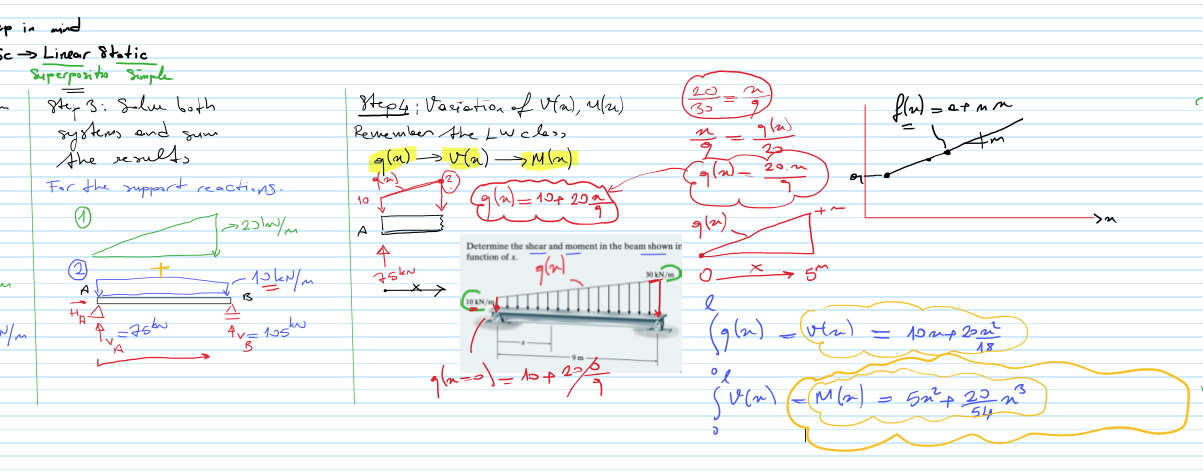 ep in mind
sc → Linear Static
Superpositio Simple
Step 3: Solve both
systems and sum
the results
For the support reactions.
①
→ 20 kN/m
②
+
10 kN/m
A
B
H_A
V_A = 75 kN
V_B = 105 kN
N/m
m
Step 4: Variation of V(x), M(x)
Remember the LW class
q(x) → V(x) → M(x)
q(x)
②
10
A
75 kN
x
q(x) = 10 + 20 x/9
Determine the shear and moment in the beam shown in
function of x.
q(x)
30 kN/m
10 kN/m
x
9 m
q(x=0) = 10 + 20·0/9
20/30 = x/9
x/9 = q(x)/20
q(x) = 20·x/9
q(x)
+m
0 x → 5 m
f(x) = a + m x
+m
a
→ x
∫₀ˡ q(x) = V(x) = 10x + 20x²/18
∫₀ˡ V(x) = M(x) = 5x² + 20/54 x³